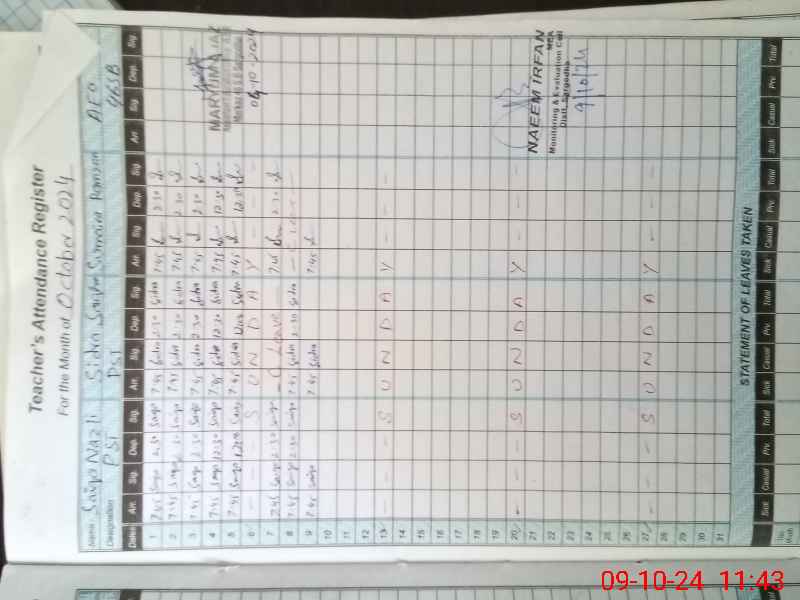 Teacher's Attendance Register
For the Month of October 2024
Name: Saiqa Nazli Sidra Saroya Sumaira Ramzan AEO
Designation PST PST 96SB
Dates Arr. Sig. Dep. Sig. Arr. Sig. Dep. Sig. Arr. Sig. Dep. Sig. Arr. Sig. Dep. Sig.
1 7.45 Saiqa 2.30 Saiqa 7.45 Sidra 2.30 Sidra 7.45 2.30
2 7.45 Saiqa 2.30 Saiqa 7.45 Sidra 2.30 Sidra 7.45 2.30
3 7.45 Saiqa 2.30 Saiqa 7.45 Sidra 2.30 Sidra 7.45 2.30
4 7.45 Saiqa 12.30 Saiqa 7.45 Sidra 12.30 Sidra 7.45 12.30
5 7.45 Saiqa 12.00 Saiqa 7.45 Sidra 12.00 Sidra 7.45 12.00
6 - - - S U N D A Y - - -
7 7.45 Saiqa 2.30 Saiqa - C Leave - 7.45 2.30
8 7.45 Saiqa 2.30 Saiqa 7.45 Sidra 2.30 Sidra
9 7.45 Saiqa 7.45 Sidra 7.45
10
11
12
13 - - - S U N D A Y - - -
14
15
16
17
18
19
20 - - - S U N D A Y - - -
21
22
23
24
25
26
27 - - - S U N D A Y - - -
28
29
30
31
STATEMENT OF LEAVES TAKEN
Sick Casual Prv Total Sick Casual Prv Total Sick Casual Prv Total Sick Casual Prv Total
MARYUM AIJAZ
04-10-2024
NAEEM IRFAN
MEA
Monitoring & Evaluation Cell
Distt. Sargodha
9/10/24
09-10-24 11:43